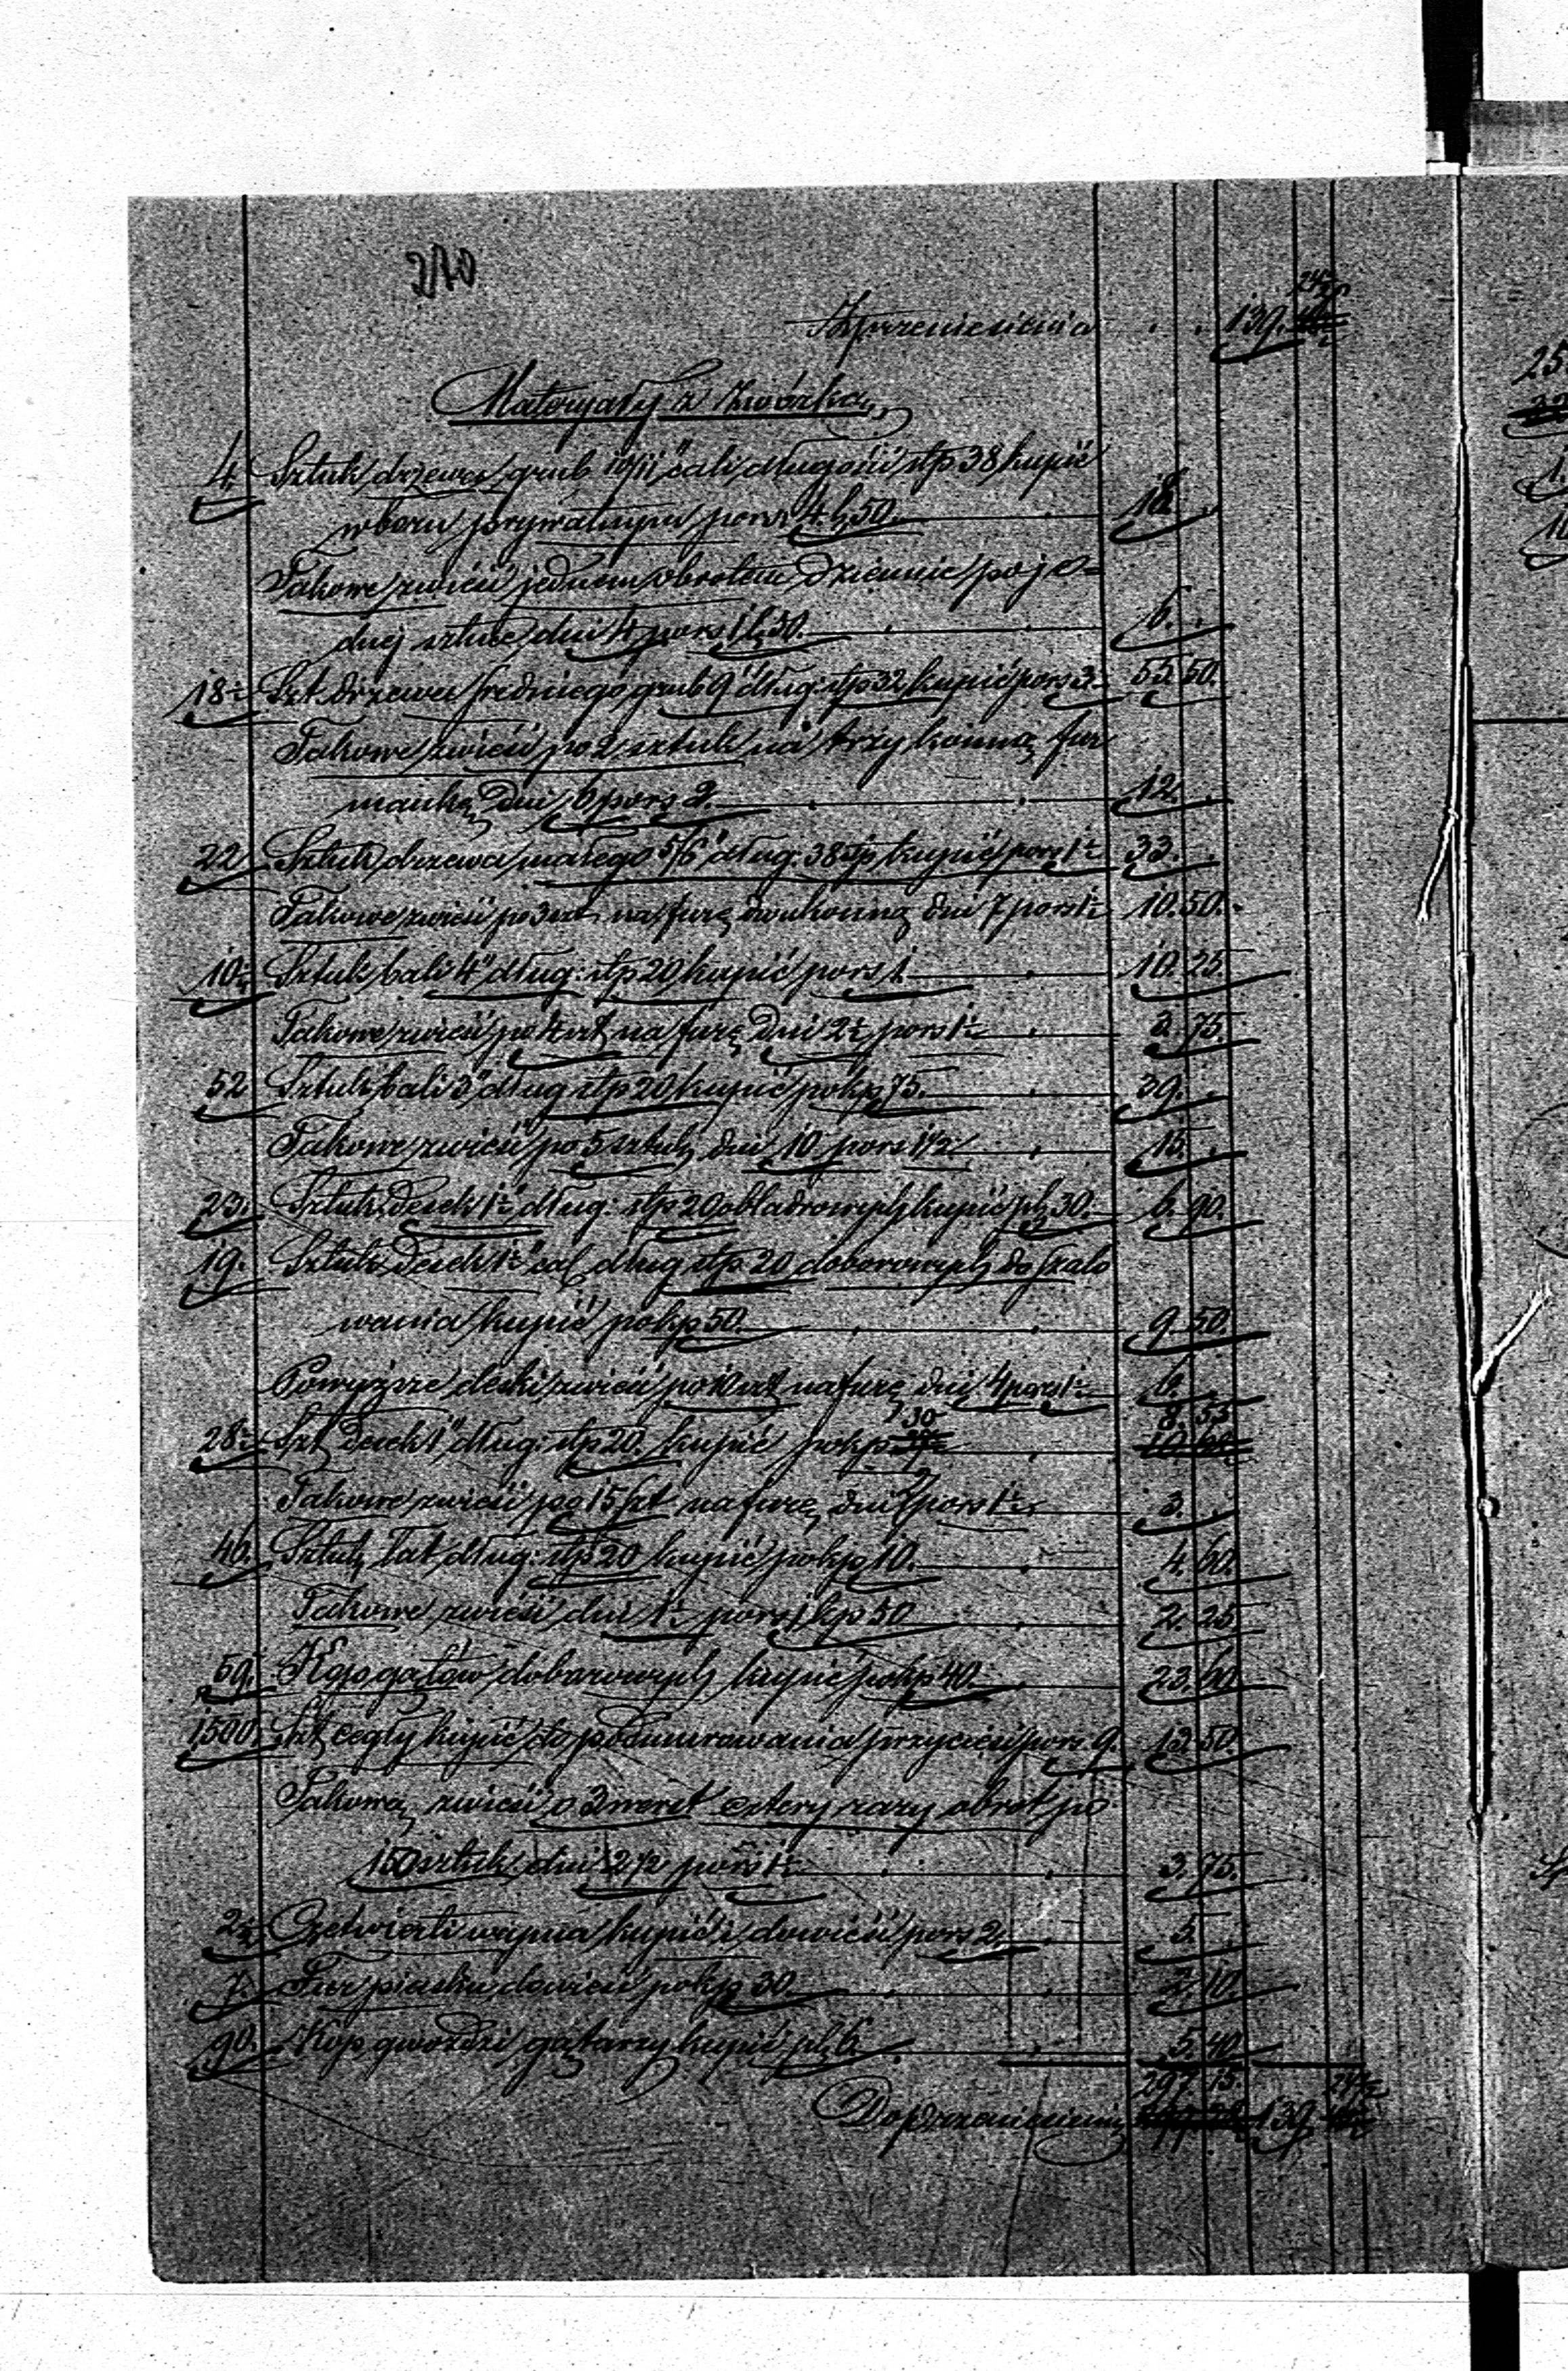 210
Z przeniesienia . . 139. 24½
Materyały z zwózką
4. Sztuk drzewa grub 10/11" cali długości stp 38 kupić
w boru prywatnym po rs 4 k 50. 18 .
Takowe zwieść jednem obrotem dziennie po je=
dnej sztuce dni 4 po rs 1 k 50. 6. .
18½ Szt. drzewa średniego grub 9" dług: stp 32 kupić po rs 3. 55 50.
Takowe zwieść po 2 sztuk na trzykonną fur
mankę dni 6 po rs 2. 12. .
22 Sztuk drzewa małego 5/6" dług: 38 stp kupić po rs 1½ 33. .
Takowe zwieść po 3 szt na furę dwukonną dni 7 po rs 1½ 10. 50.
10¼ Sztuk bali 4" dług: stp 20 kupić po rs 1. 10. 25.
Takowe zwieść po 4 szt na furę dni 2½ po rs 1½ 3. 75.
52 Sztuk bali 3" dług stp 20 kupić po kp 75. 39. .
Takowe zwieść po 5 sztuk dni 10 po rs 1½ 15. .
23. Sztuk desek 1½" dług: stp 20 obladrowych kupić p k 30. 6. 90.
19. Sztuk desek 1½" cal dług stp 20 doborowych do szalo
wania kupić po kp 50. 9. 50.
Powyższe deski zwieść po 10 szt na furę dni 4 po rs 1½ 6. .
28½ Szt desek 1" dług: stp 20. kupić po kp 30 8. 55
Takowe zwieść po 15 szt na furę dni 2 po rs 1½ 3. .
46. Sztuk łat dług: stp 20 kupić po kp 10. 4. 60.
Takowe zwieść dni 1½ po rs 1 kp 50 2. 25
59. Kop gątów doborowych kupić po kp 40. 23. 60.
1,500. Szt cegły kupić do podmurowania przycieśi po rs 9. 13 50.
Takową zwieść o 3 werst cztery razy obrot po
150 sztuk dni 2½ po rs 1½ 3. 75.
2½ Czetwierti wapna kupić i dowieść po rs 2. 5. .
7. Fur piasku dowieść po kp 30. 2. 10.
90. Kop gwoździ gątarzy kupić p k 6. 5. 40.
297 15. 24½
Do przeniesienia 139